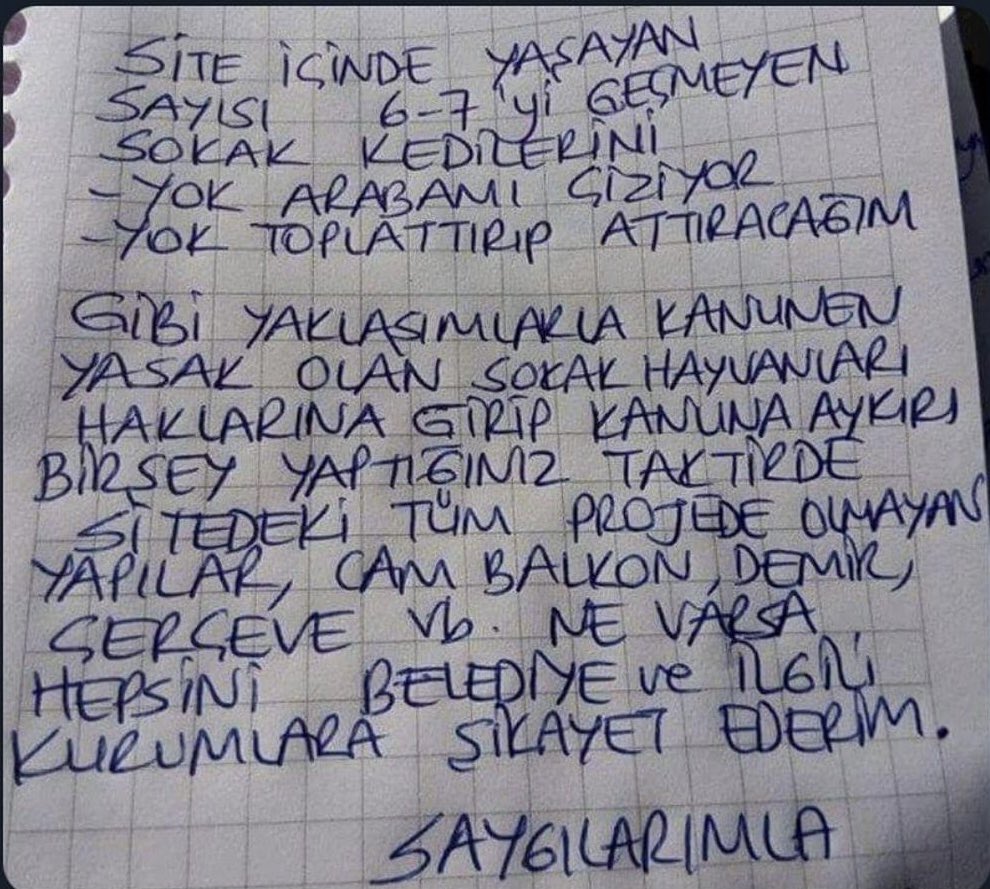 SİTE İÇİNDE YAŞAYAN
SAYISI 6-7'yi GEÇMEYEN
SOKAK KEDİLERİNİ
-YOK ARABAMI ÇİZİYOR
-YOK TOPLATTIRIP ATTIRACAĞIM
GİBİ YAKLAŞIMLARLA KANUNEN
YASAK OLAN SOKAK HAYVANLARI
HAKLARINA GİRİP KANUNA AYKIRI
BİRŞEY YAPTIĞINIZ TAKTİRDE
SİTEDEKİ TÜM PROJEDE OLMAYAN
YAPILAR, CAM BALKON, DEMİR,
ÇERÇEVE Vb. NE VARSA
HEPSİNİ BELEDİYE ve İLGİLİ
KURUMLARA ŞİKAYET EDERİM.
SAYGILARIMLA